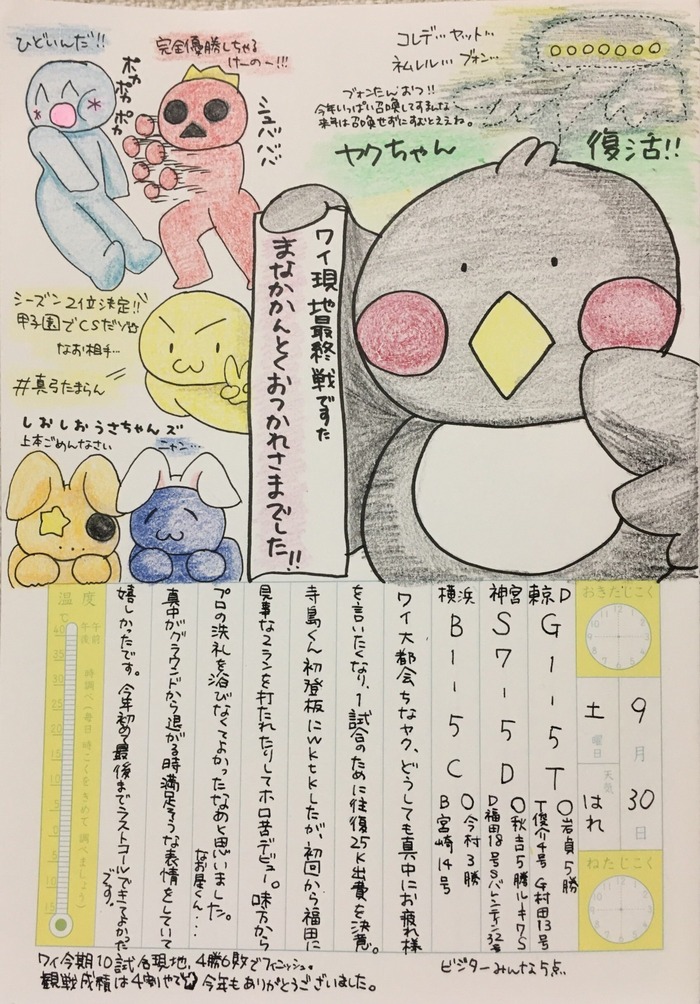 ひどいんだ!!
ポカ
ポカ
ポカ
完全優勝しちゃる
けーのー!!!
シュババババ
コレデ…ヤット…
ネムレル…ブォン…
ブォンたんおつ!!
今年いっぱい召喚してすまんな
来年は召喚せずにすむとええね。
ヤクちゃん
復活!!
ワイ現地最終戦ですた
まなかかんとくおつかれさまでした!!
シーズン2位決定!!
甲子園でCSだソ
なお相手…
#真弓たまらん
しおしおうさちゃんズ
上本ごめんなさい
ニャン…
おきたじこく
9月30日
土曜日
天気 はれ
ねたじこく
東京D G1-5T
○岩貞5勝
T俊介4号 G村田13号
神宮 S7-5D
○秋吉5勝ルーキ7S
D福田18号Sバレンティン32号
横浜 B1-5C
○今村3勝
B宮崎14号
ワイ大都会ちなヤク、どうしても真中にお疲れ様
を言いたくなり、1試合のために往復25K出費を決意。
寺島くん初登板にwktkしたが、初回から福田に
見事な3ランを打たれたりしてホロ苦デビュー。味方から
プロの洗礼を浴びなくてよかったなあと思いました。
なお星くん…
真中がグラウンドから退がる時満足そうな表情をしていて
嬉しかったです。今年初めて最後までラストコールできてよかった
です。
温度
℃
午前
午後
時調べ(毎日時こくをきめて調べましょう)
40
35
30
25
20
15
10
5
0
5
10
15
ワイ今期10試合現地、4勝6敗でフィニッシュ。
観戦成績は4割やで 今年もありがとうございました。
ビジターみんな5点